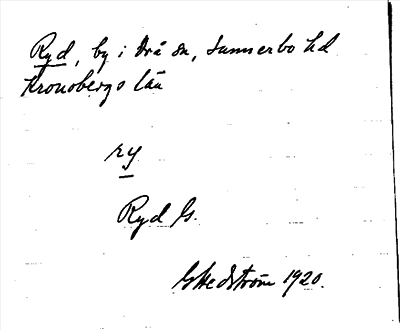 Ryd, by i Drå sn, Sunnerbo hd
Kronobergs län
ry
Ryd G.
GHedström 1920.